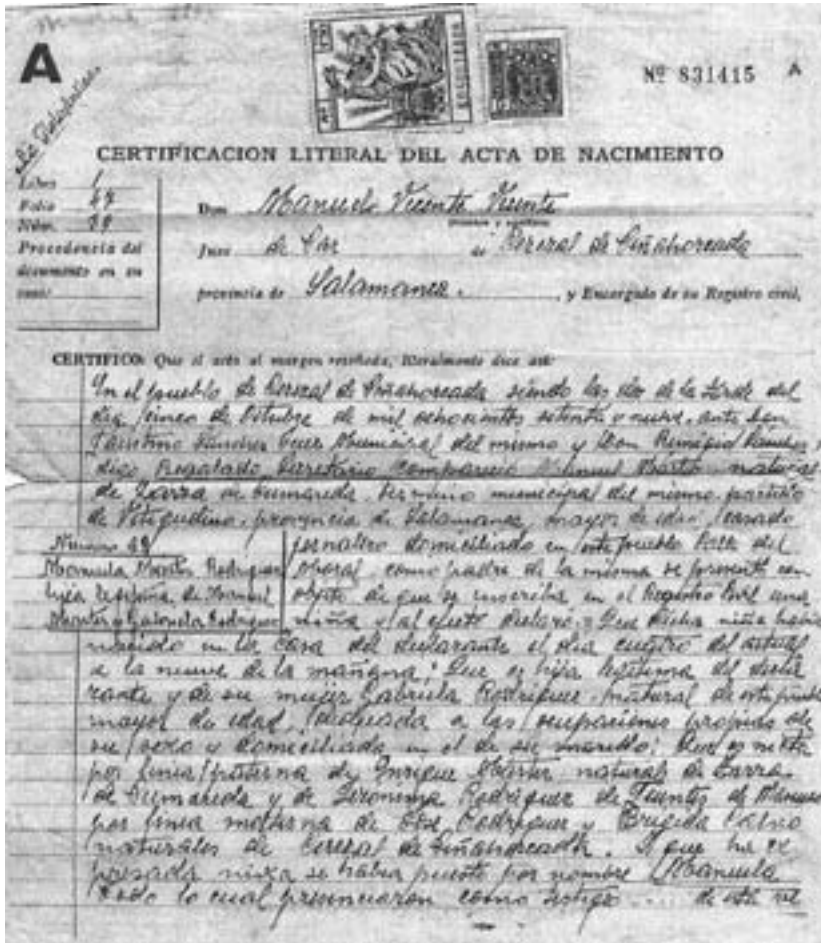 A
Nº 831415 A
CERTIFICACION LITERAL DEL ACTA DE NACIMIENTO
Libro 1
Folio 49
Núm. 99
Procedencia del
documento en su
caso:
Don Manuel Vicente Vicente
(nombre y apellidos)
Juez de Paz de Cerezal de Peñahorcada
provincia de Salamanca, y Encargado de su Registro civil,
CERTIFICO: Que el acta al margen reseñada, literalmente dice así:
En el pueblo de Cerezal de Peñahorcada siendo las dos de la tarde del
día cinco de Octubre de mil ochocientos setenta y nueve, ante Don
Faustino Sánchez Juez Municipal del mismo y Don Remigio Sánchez
digo Regalado Secretario Compareció Manuel Martín natural
de Zarza de Pumareda, término municipal del mismo, partido
de Vitigudino, provincia de Salamanca, mayor de edad, casado
jornalero domiciliado en este pueblo Calle del
como padre de la misma se presentó con
objeto de que se inscriba en el Registro Civil una
niña y al efecto declaró: Que dicha niña había
Manuela Rodríguez
hija legítima de Manuel
y Gabriela Rodríguez
nacido en la casa del declarante el día cuatro del actual
a la nueve de la mañana; Que es hija legítima del decla
rante y de su mujer Gabriela Rodríguez, natural de este pueblo
mayor de edad, dedicada a las ocupaciones propias de
su sexo y domiciliada en el de su marido; Que es nieta
por línea paterna de Enrique Martín natural de Zarza
de Pumareda y de Jerónima Rodríguez de Fuentes de Masueco
por línea materna de José Rodríguez y Brígida Calvo
naturales de Cerezal de Peñahorcada. Y que ha ex
presada niña se había puesto por nombre Manuela
Todo lo cual presenciaron como testigos